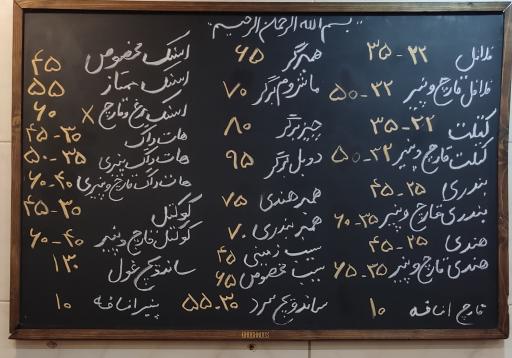 بسم الله الرحمن الرحیم
فلافل ۲۲-۳۵
فلافل قارچ و پنیر ۳۲-۵۰
کتلت ۲۲-۳۵
کتلت قارچ و پنیر ۳۲-۵۰
بندری ۲۵-۴۵
بندری قارچ و پنیر ۳۵-۶۰
هندی ۲۵-۴۵
هندی قارچ و پنیر ۳۵-۶۵
قارچ اضافه ۱۰
همبرگر ۶۵
ماشروم برگر ۷۰
چیزبرگر ۸۰
دوبل برگر ۹۵
همبر هندی ۷۵
همبر بندری ۷۰
سیب زمینی ۴۵
سیب مخصوص ۶۵
ساندویچ سرد ۳۰-۵۵
اسنک مخصوص ۴۵
اسنک ممتاز ۵۵
اسنک مرغ و قارچ x ۶۰
هات داگ ۳۰-۴۵
هات داگ پنیری ۳۵-۵۰
هات داگ قارچ و پنیری ۴۰-۶۰
کوکتل ۳۰-۴۵
کوکتل قارچ و پنیر ۴۰-۶۰
ساندویچ غول ۱۳۰
پنیر اضافه ۱۰